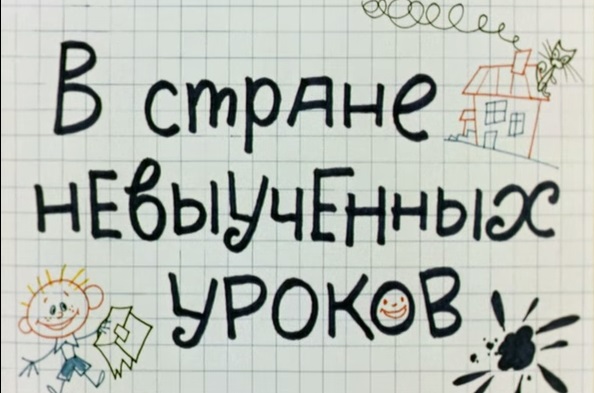 В стране
невыученных
уроков